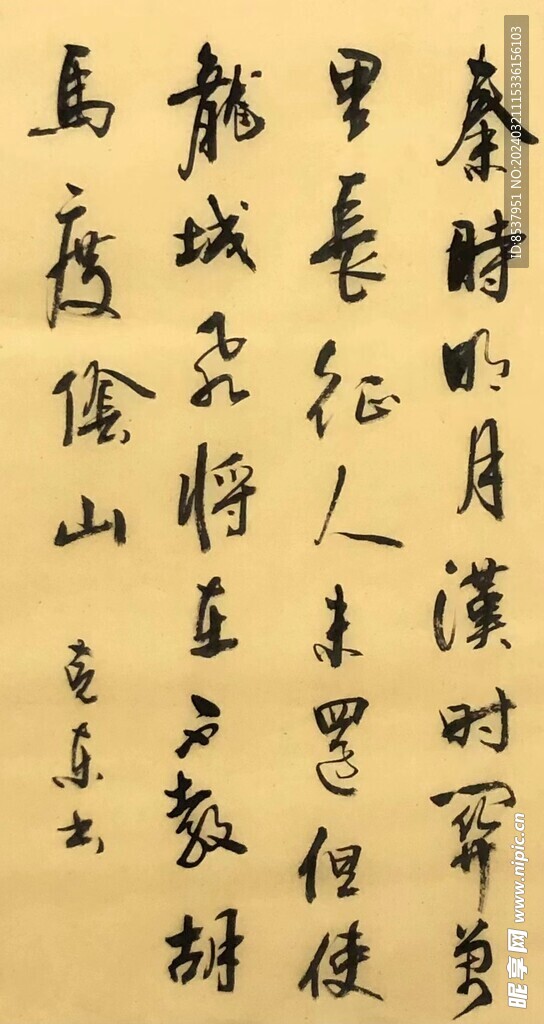 秦時明月漢时關萬
里長征人未還但使
龍城飛将在不教胡
馬度陰山
克东书
ID:8537951 NO:20240321115336156103
昵享网 www.nipic.cn